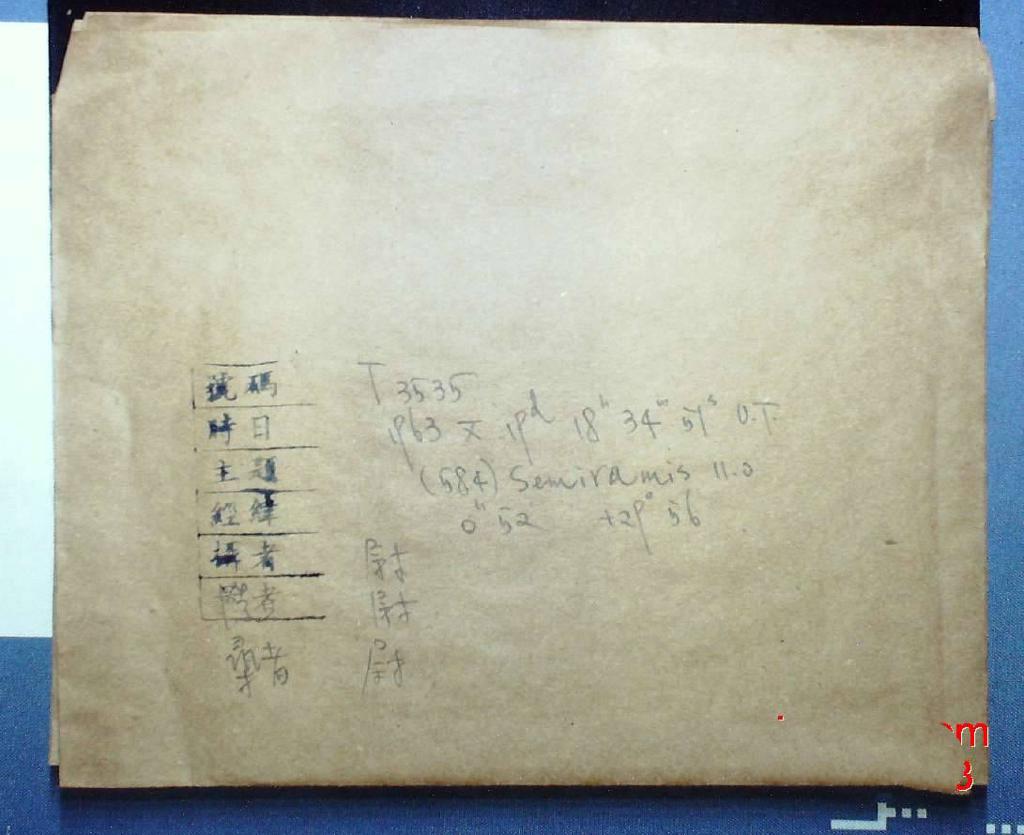 號碼 T 3535
時日 1963 X 19ᵈ 18ʰ 34ᵐ 51ˢ U.T.
主題 (584) Semiramis 11.0
經緯 0ʰ 52 +29° 56
攝者 尉
尉
者 尉
m
3